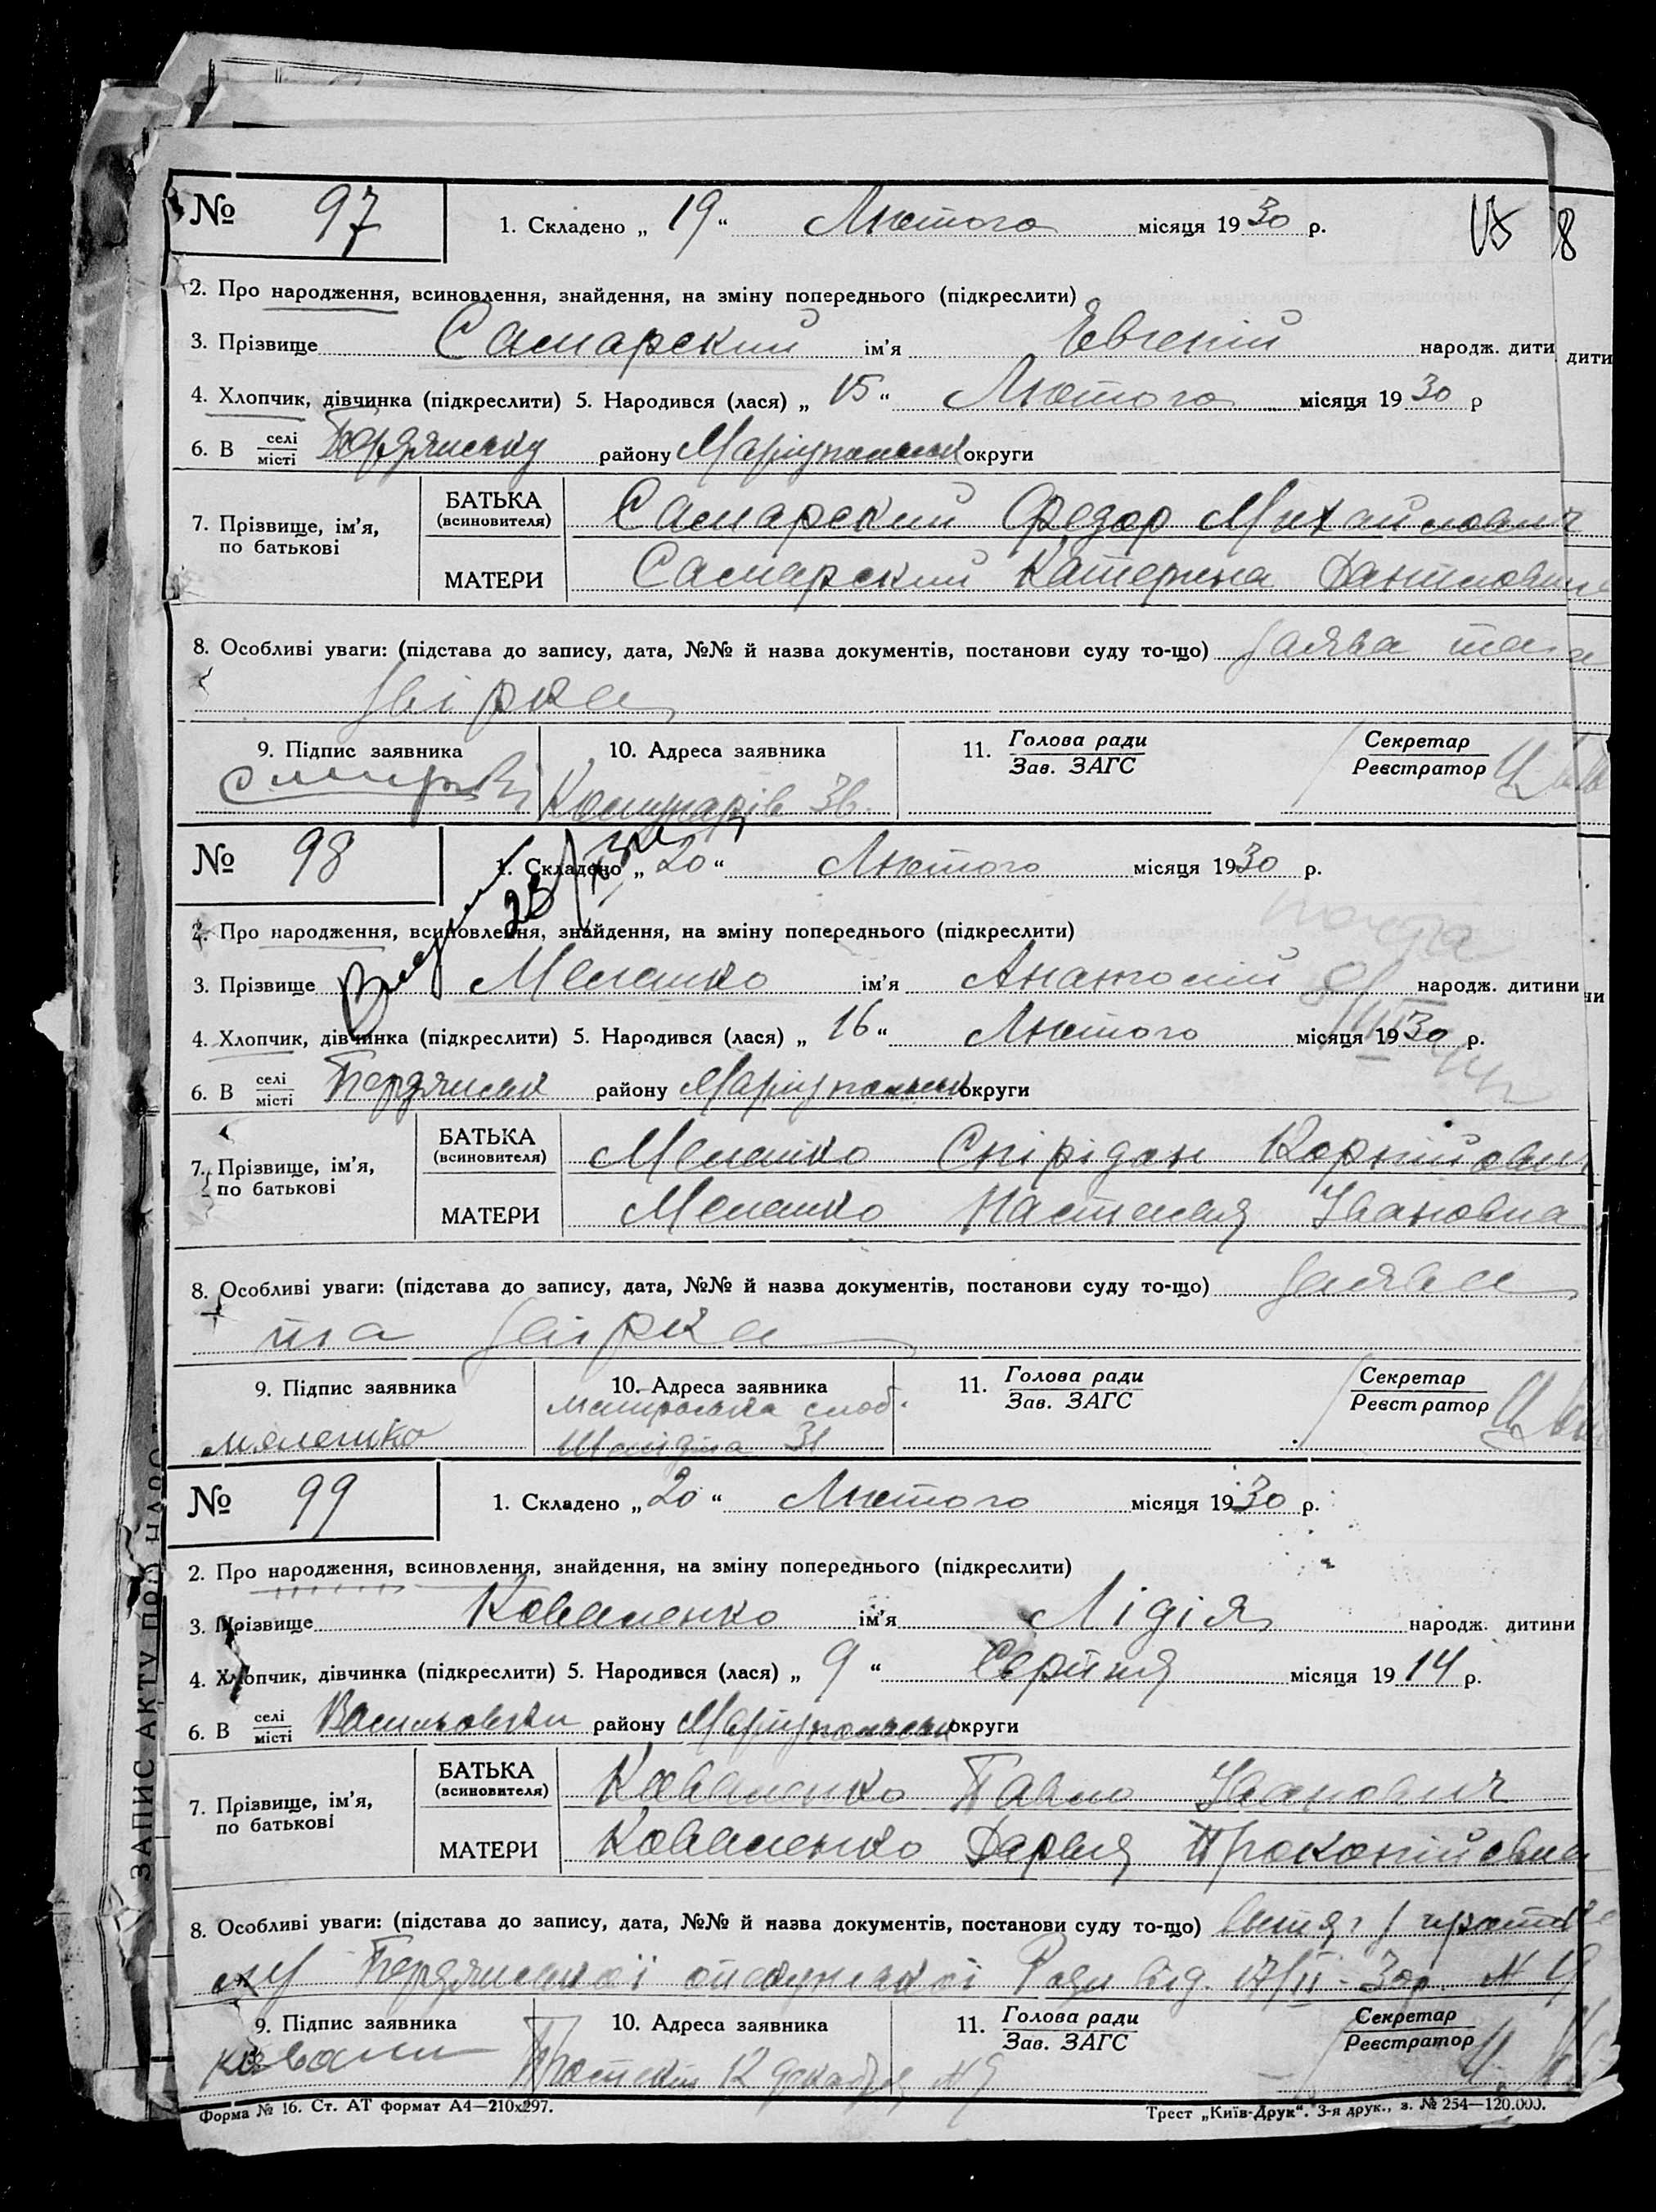 № 97 1. Складено „ 19 “ Лютого місяця 1930 р.
2. Про народження, всиновлення, знайдення, на зміну попереднього (підкреслити)
3. Прізвище Самарский ім'я Евгеній народж. дити дити
4. Хлопчик, дівчинка (підкреслити) 5. Народився (лася) „ 15 “ Лютого місяця 1930 р
6. В селі місті Бердянську району Маріупольськ округи
7. Прізвище, ім'я, по батькові БАТЬКА (всиновителя) Самарский Федор Михайлович
МАТЕРИ Самарский Катерина Даниловна
8. Особливі уваги: (підстава до запису, дата, №№ й назва документів, постанови суду то-що) заява та
звірка
9. Підпис заявника 10. Адреса заявника 11. Голова ради Зав. ЗАГС Секретар Реєстратор
Комунарів 36
№ 98 1. Складено „ 20 “ Лютого місяця 1930 р.
2. Про народження, всиновлення, знайдення, на зміну попереднього (підкреслити)
3. Прізвище Мелешко ім'я Анатолій народж. дитини
4. Хлопчик, дівчинка (підкреслити) 5. Народився (лася) „ 16 “ Лютого місяця 1930 р.
6. В селі місті Бердянськ району Маріупольськ округи
7. Прізвище, ім'я, по батькові БАТЬКА (всиновителя) Мелешко Спірідон Корнійович
МАТЕРИ Мелешко Настасия Івановна
8. Особливі уваги: (підстава до запису, дата, №№ й назва документів, постанови суду то-що) заява
та звірка
9. Підпис заявника 10. Адреса заявника 11. Голова ради Зав. ЗАГС Секретар Реєстратор
мелешко слоб. 31
№ 99 1. Складено „ 20 “ Лютого місяця 1930 р.
2. Про народження, всиновлення, знайдення, на зміну попереднього (підкреслити)
3. Прізвище Коваленко ім'я Лідія народж. дитини
4. Хлопчик, дівчинка (підкреслити) 5. Народився (лася) „ 9 “ Серпня місяця 1914 р.
6. В селі місті Васильовки району Маріупольськ округи
7. Прізвище, ім'я, по батькові БАТЬКА (всиновителя) Коваленко Павло Іванович
МАТЕРИ Коваленко Дарья Прокопійовна
8. Особливі уваги: (підстава до запису, дата, №№ й назва документів, постанови суду то-що) витяг з протоко
лу Бердянської опекунської Ради від. 17/II-30р. №
9. Підпис заявника 10. Адреса заявника 11. Голова ради Зав. ЗАГС Секретар Реєстратор
Проспект 12 декабря №
Форма № 16. Ст. АТ формат А4—210х297. Трест „Київ-Друк“. 3-я друк., з. № 254—120.000.
ЗАПИС АКТУ ПРО НАРО